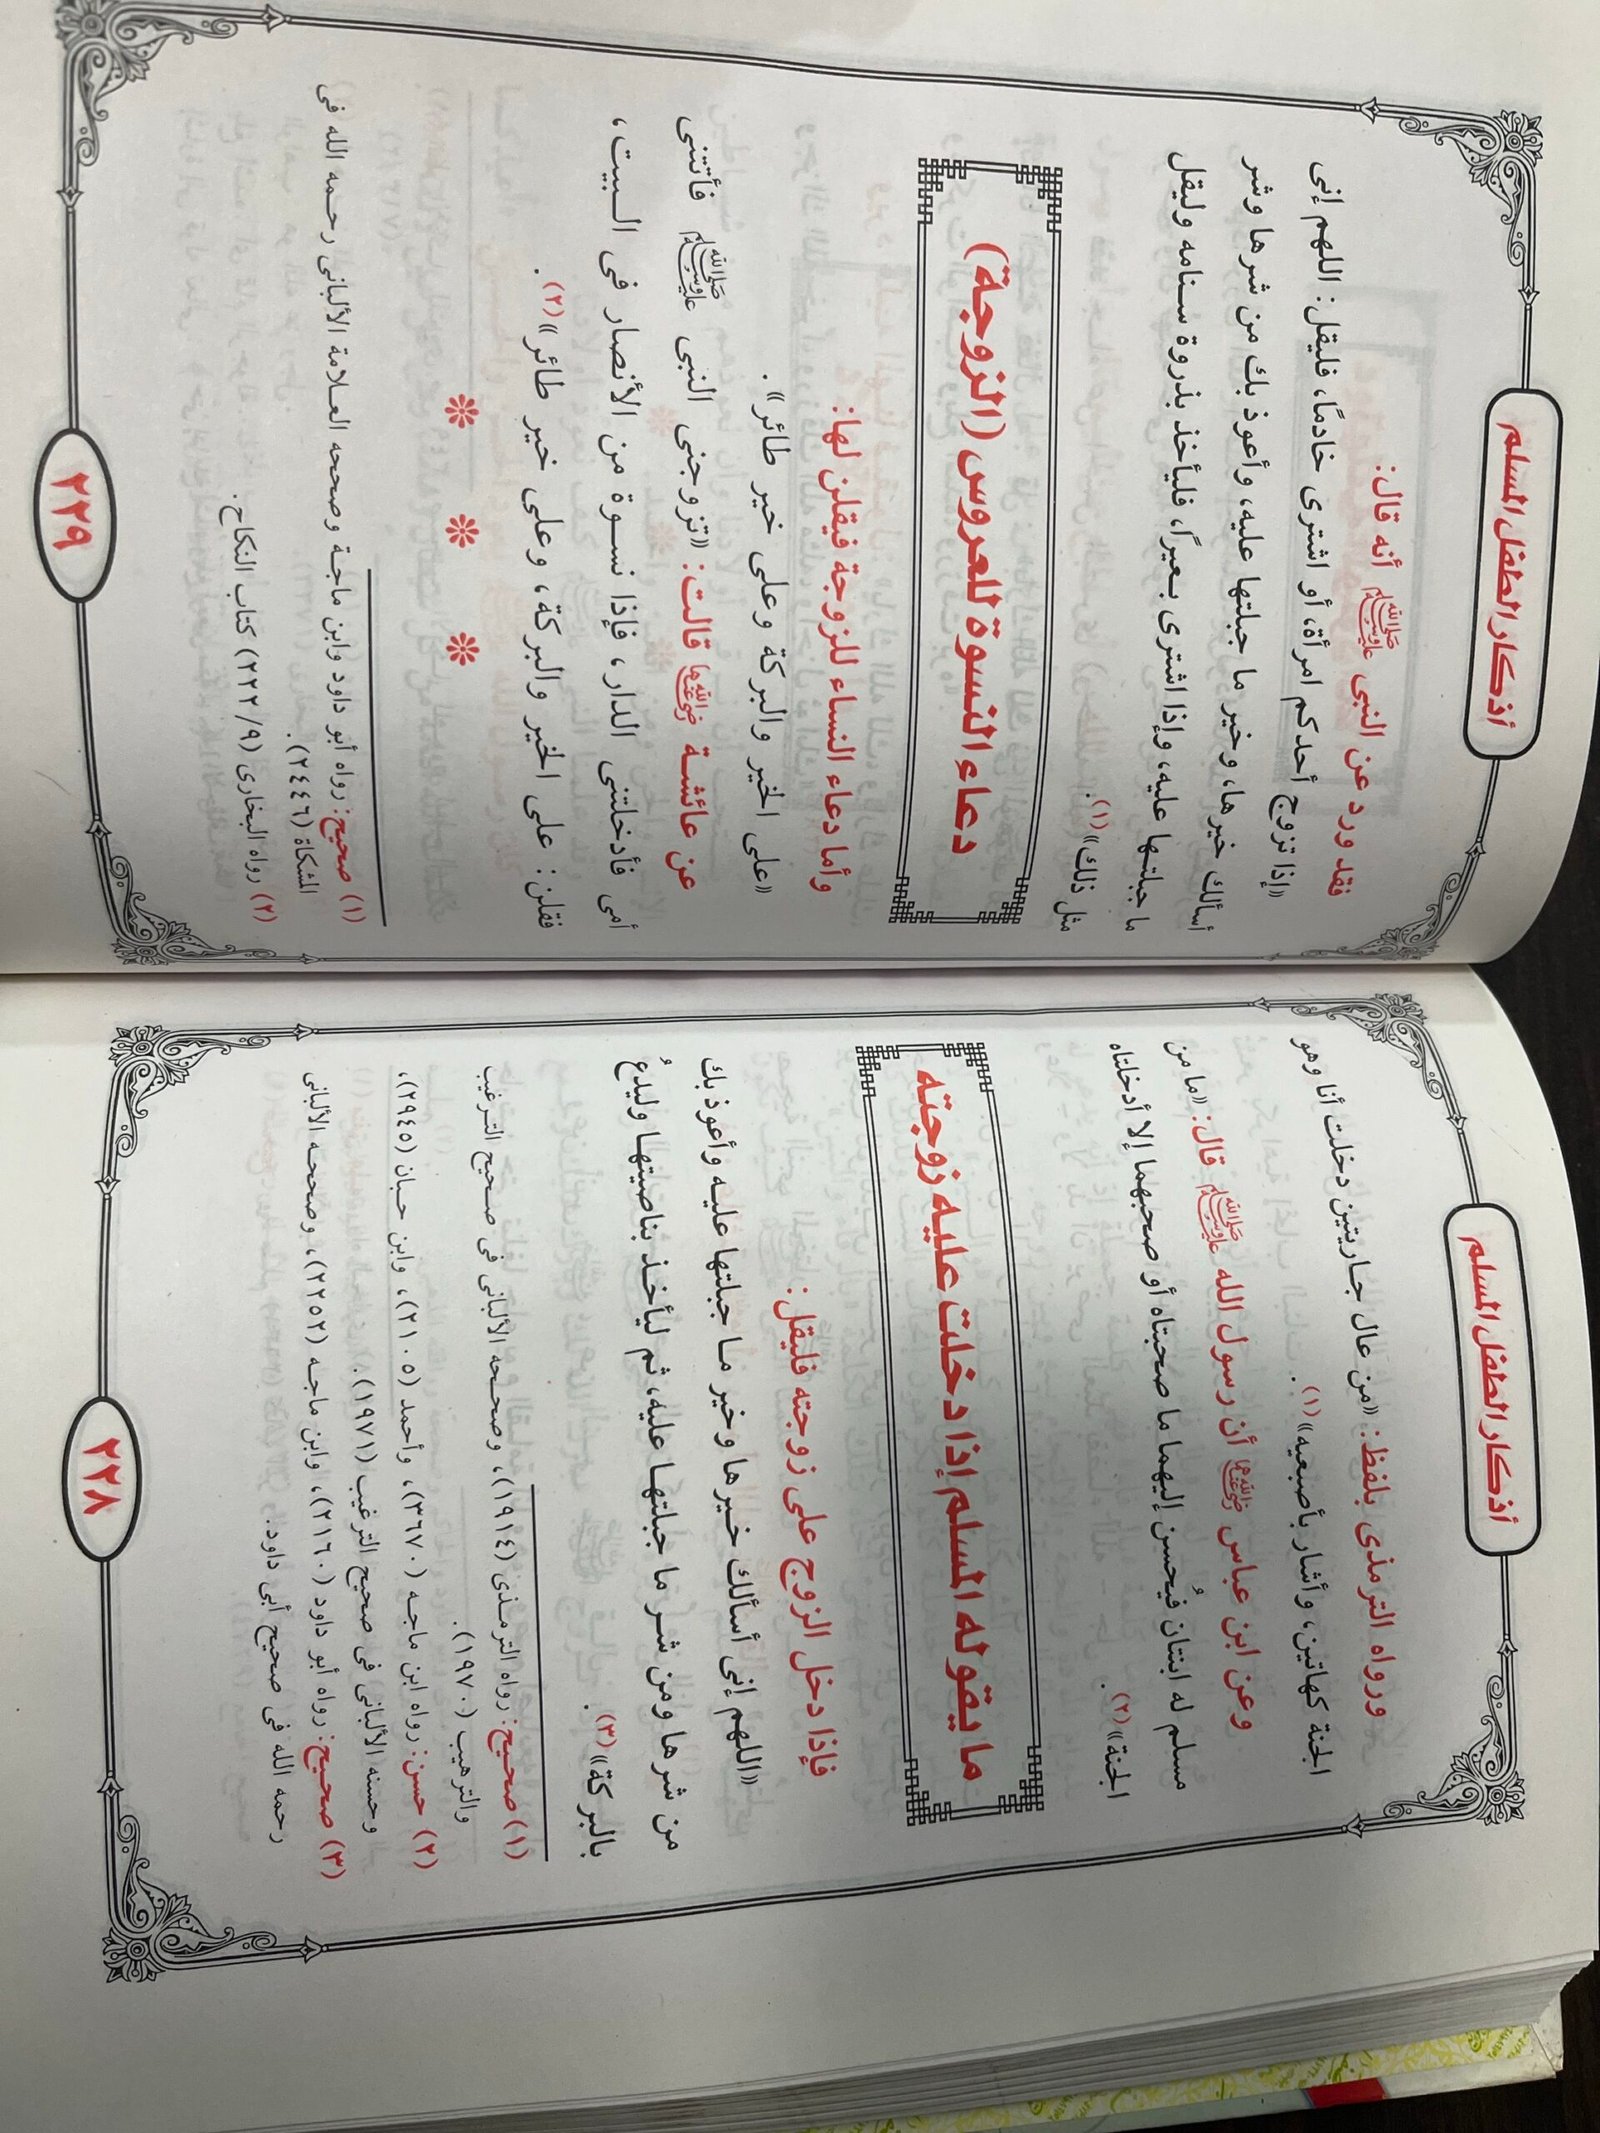 أذكار الطفل المسلم
ورواه الترمذى بلفظ: «من عال جاريتين دخلت أنا وهو
الجنة كهاتين، وأشار بأصبعيه»(١).
وعن ابن عباس رضي الله عنهما أن رسول الله ﷺ قال: «ما من
مسلم له ابنتان فيُحسن إليهما ما صحبتاه أو صحبهما إلا أدخلتاه
الجنة»(٢).
ما يقوله المسلم إذا دخلت عليه زوجته
فإذا دخل الزوج على زوجته فليقل:
«اللهم إنى أسألك خيرها وخير ما جبلتها عليه وأعوذ بك
من شرها ومن شر ما جبلتها عليه، ثم ليأخذ بناصيتها وليدعُ
بالبركة»(٣).
(١) صحيح: رواه الترمذى (١٩١٤)، وصححه الألبانى فى صحيح الترغيب
والترهيب (١٩٧٠).
(٢) حسن: رواه ابن ماجه (٣٦٧٠)، وأحمد (٢١٠٥)، وابن حبان (٢٩٤٥)،
وحسنه الألبانى فى صحيح الترغيب (١٩٧١).
(٣) صحيح: رواه أبو داود (٢١٦٠)، وابن ماجه (٢٢٥٢)، وصححه الألبانى
رحمه الله فى صحيح أبى داود.
٢٢٨
أذكار الطفل المسلم
فقد ورد عن النبى ﷺ أنه قال:
«إذا تزوج أحدكم امرأة، أو اشترى خادمًا، فليقل: اللهم إنى
أسألك خيرها، وخير ما جبلتها عليه، وأعوذ بك من شرها وشر
ما جبلتها عليه، وإذا اشترى بعيرًا، فليأخذ بذروة سنامه وليقل
مثل ذلك»(١).
دعاء النسوة للعروس (الزوجة)
وأما دعاء النساء للزوجة فيقلن لها:
«على الخير والبركة وعلى خير طائر».
عن عائشة رضي الله عنها قالت: «تزوجنى النبى ﷺ فأتتنى
أمى فأدخلتنى الدار، فإذا نسوة من الأنصار فى البيت،
فقلن: على الخير والبركة، وعلى خير طائر»(٢).
(١) صحيح: رواه أبو داود وابن ماجة وصححه العلامة الألبانى رحمه الله فى
المشكاة (٢٤٤٦).
(٢) رواه البخارى (٩/ ٢٢٢) كتاب النكاح.
٢٢٩